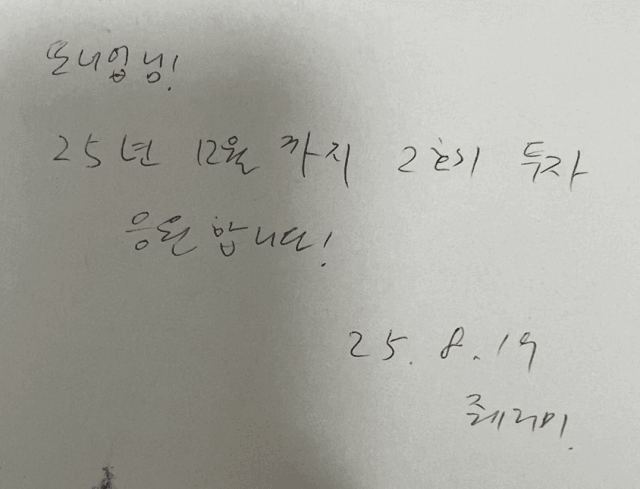 또니업님!
25년 12월 까지 2회 투자
응원 합니다!
25. 8. 19
쥬레미.